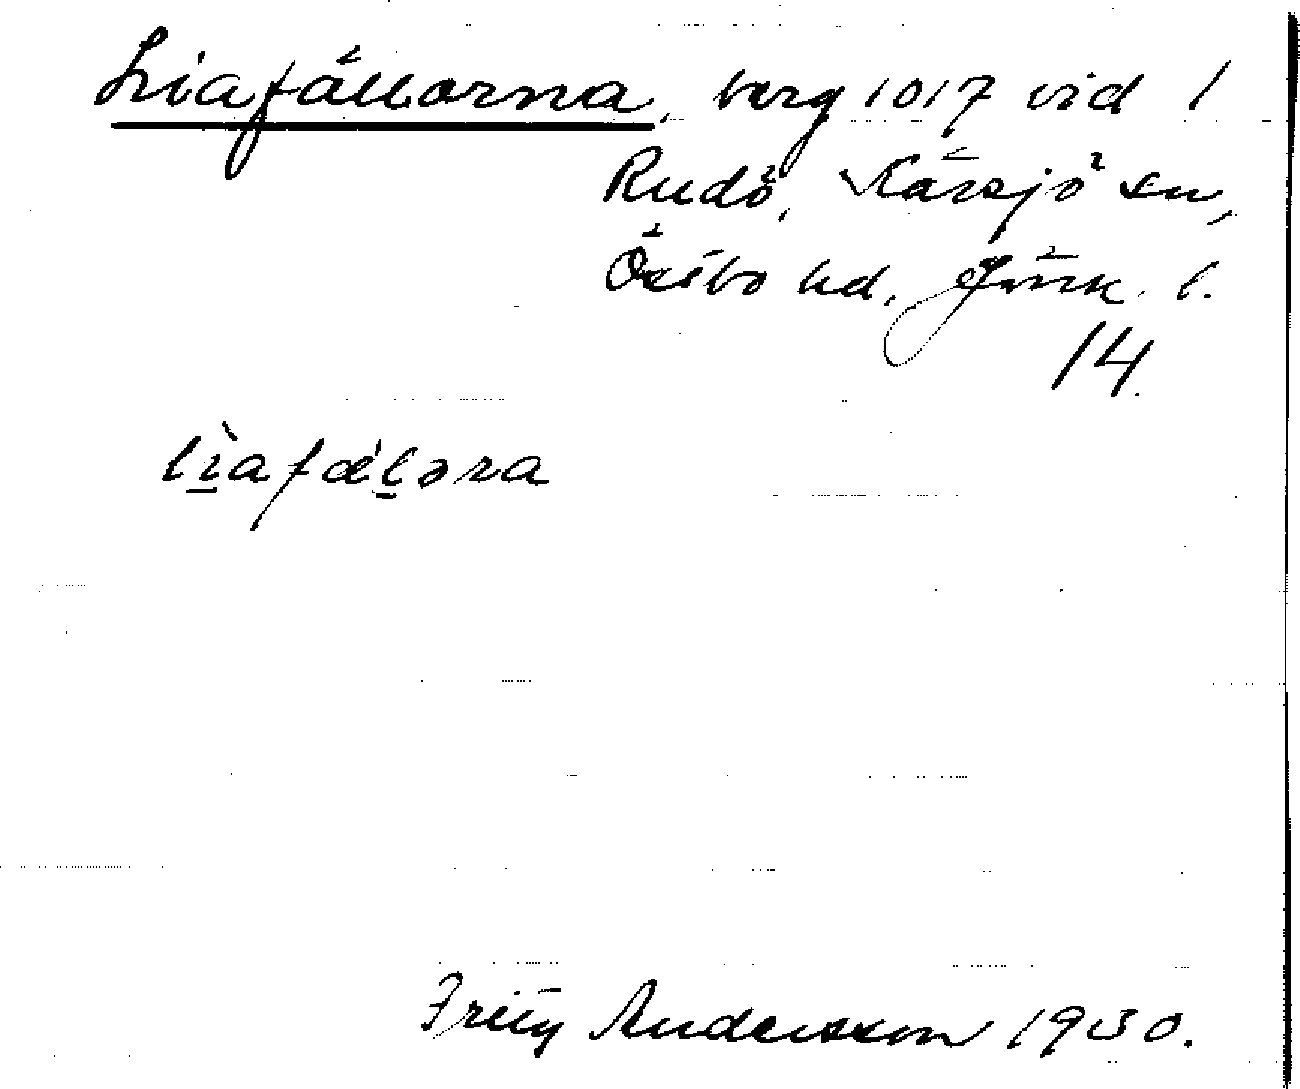 Liafällorna, berg 1017 vid 1
Rudö, Kärsjö sn,
Östbo hd, Jönk. l.
14.
lìafæ̀lǝra
Fritz Andersson 1930.